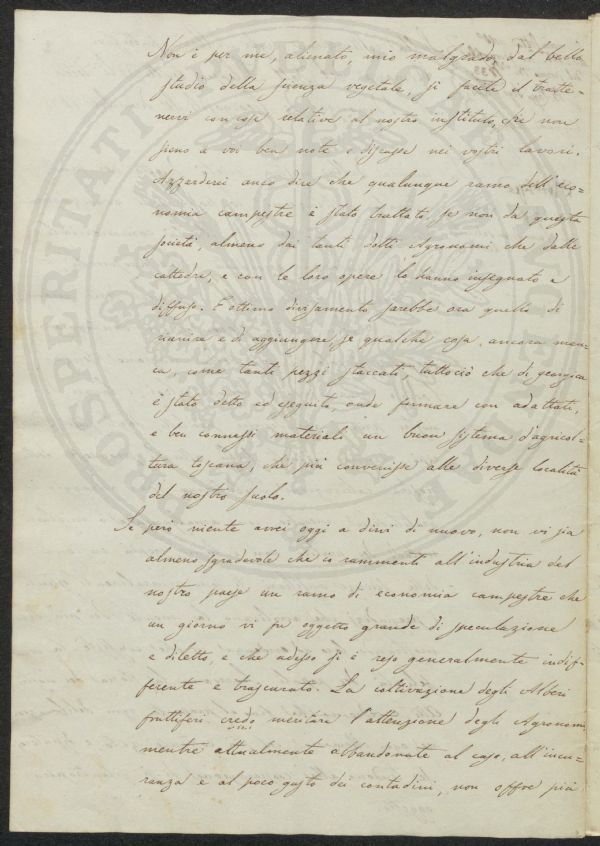 Non è per me, alienato, mio malgrado, dal bello
studio della scienza vegetale, sì facile il tratte-
nervi con cose relative al nostro instituto, che non
sieno a voi ben note e discusse nei vostri lavori.
Azzarderei anco dire che qualunque ramo dell'eco=
nomia campestre è stato trattato, se non da questa
società, almeno dai tanti dotti Agronomi che dalle
cattedre, e con le loro opere lo hanno insegnato e
diffuso. E ottimo divisamento sarebbe ora quello di
riunire e di aggiungere, se qualche cosa ancora man=
ca, come tanti pezzi staccati, tuttociò che di georgica
è stato detto ed eseguito, onde formare con adattati,
e ben connessi materiali un buon sistema d'agricol=
tura toscana, che più convenisse alle diverse località
del nostro suolo.
Se però niente avrei oggi a dirvi di nuovo, non vi sia
almeno sgradevole che io rammenti all'industria del
nostro paese un ramo di economia campestre che
un giorno vi fu oggetto grande di speculazione
e diletto, e che adesso si è reso generalmente indif=
ferente e trascurato. La coltivazione degli Alberi
fruttiferi credo meritare l'attenzione degli Agronomi
mentre attualmente abbandonate al caso, all'incu=
ranza e al poco gusto dei contadini, non offre più
PROSPERITATI PUBLICAE